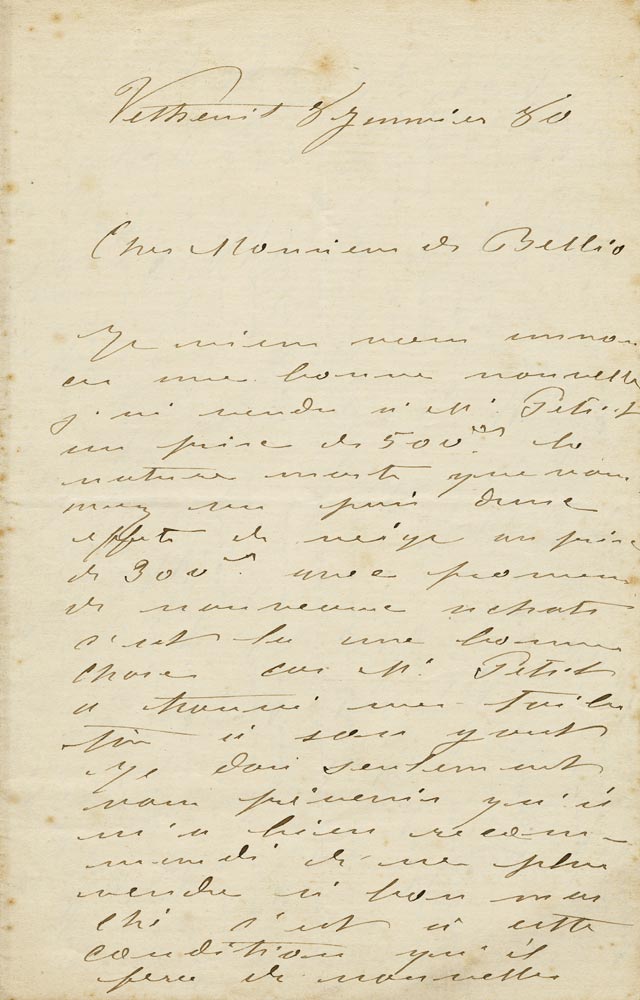 Vétheuil 8 Janvier 80
Cher Monsieur de Bellio
Je viens vous annon
cer une bonne nouvelle
j'ai vendu à M. Petit
au prix de 500 frs la
nature morte que vous
avez vu puis deux
effets de neige au prix
de 300 frs. avec promesse
de nouveaux achats
c'est là une bonne
chose car M. Petit
a trouvé mes toiles
à son gout
Je dois seulement
vous prévenir qu'il
m'a bien recom-
mandé de ne plus
vendre à bon mar
ché c'est à cette
condition qu'il
fera de nouvelles